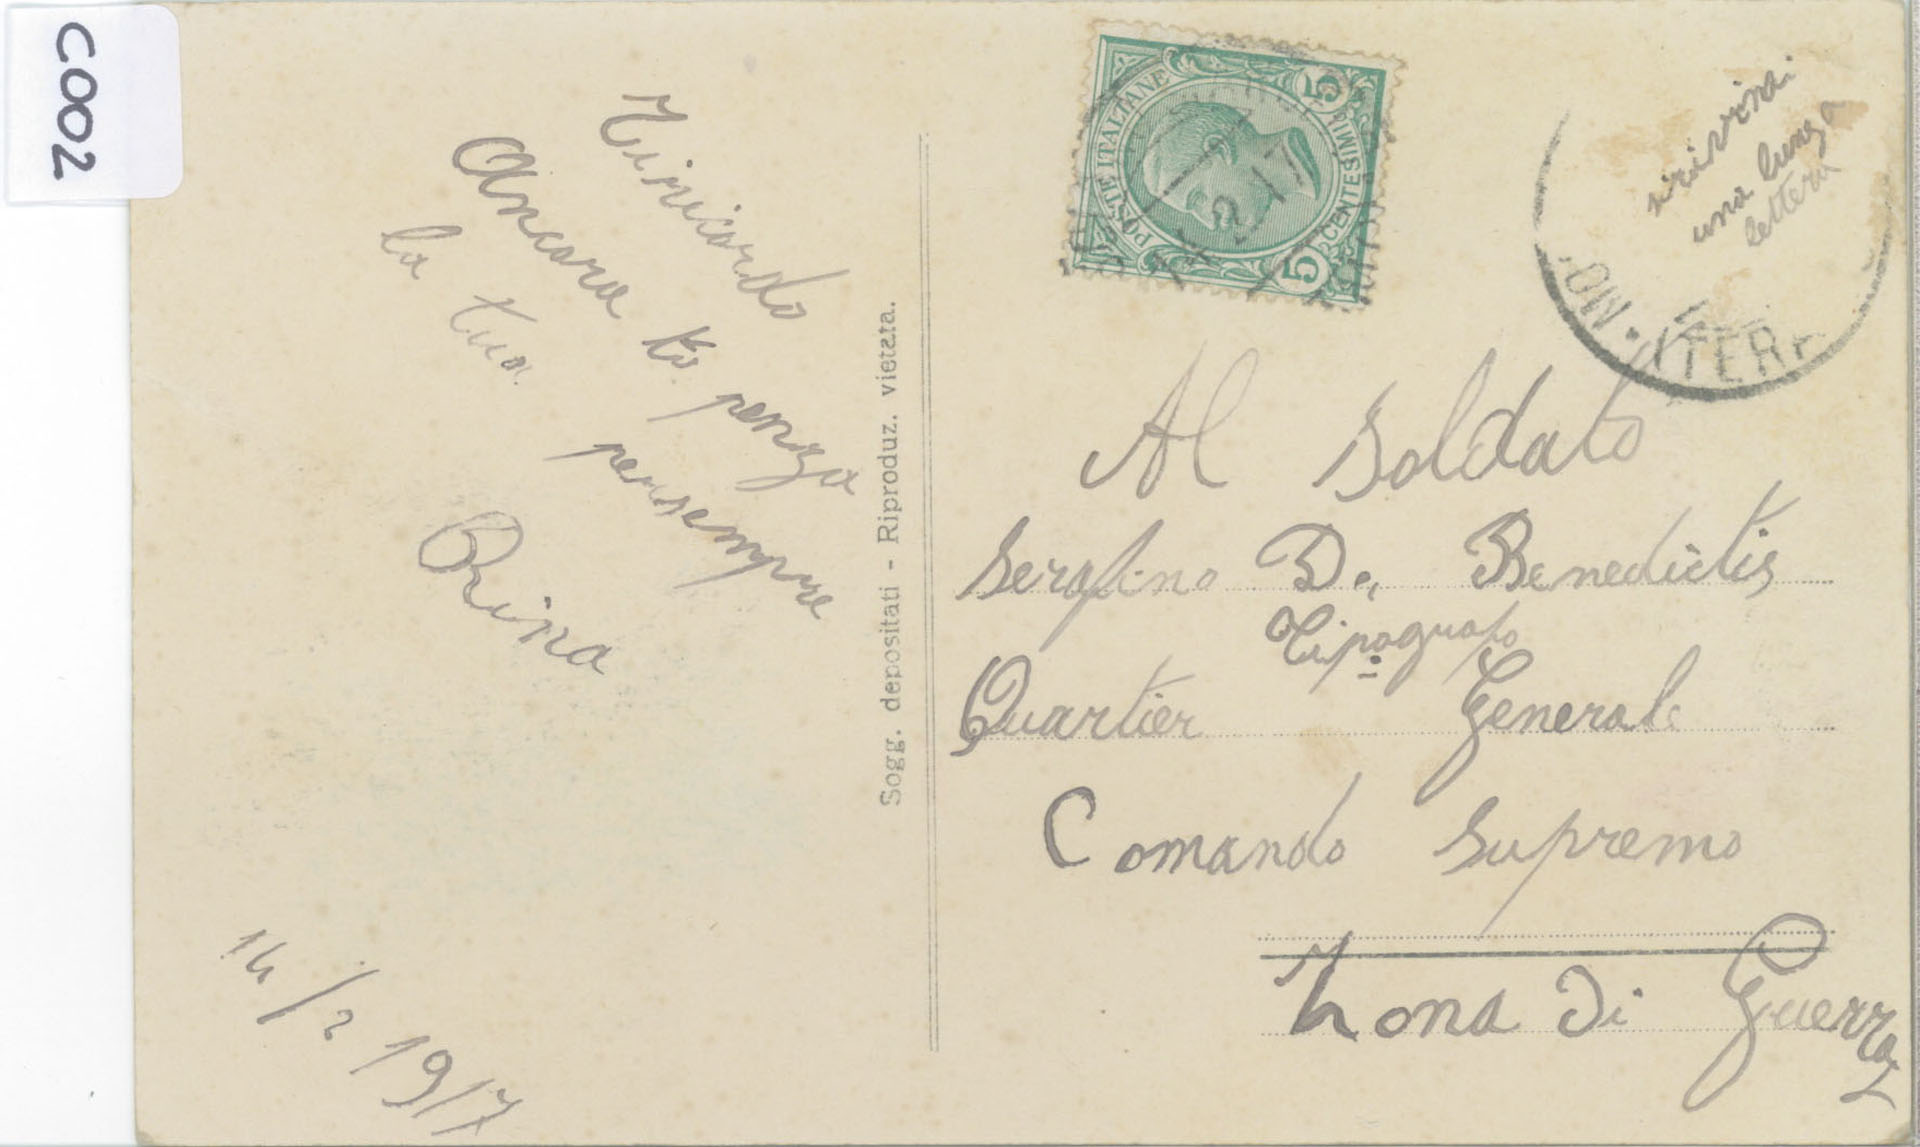 C002
Ti ricordo
Ancora ti penza
la tua pensempre
Rina
14/2 1917
Sogg. depositati - Riproduz. vietata.
POSTE ITALIANE
CENTESIMI
5
5
2.17
una lunga
lettera
Al Soldato
Serafino De Benedictis
Tipografo
Quartier Generale
Comando Supremo
Zona Di Guerra